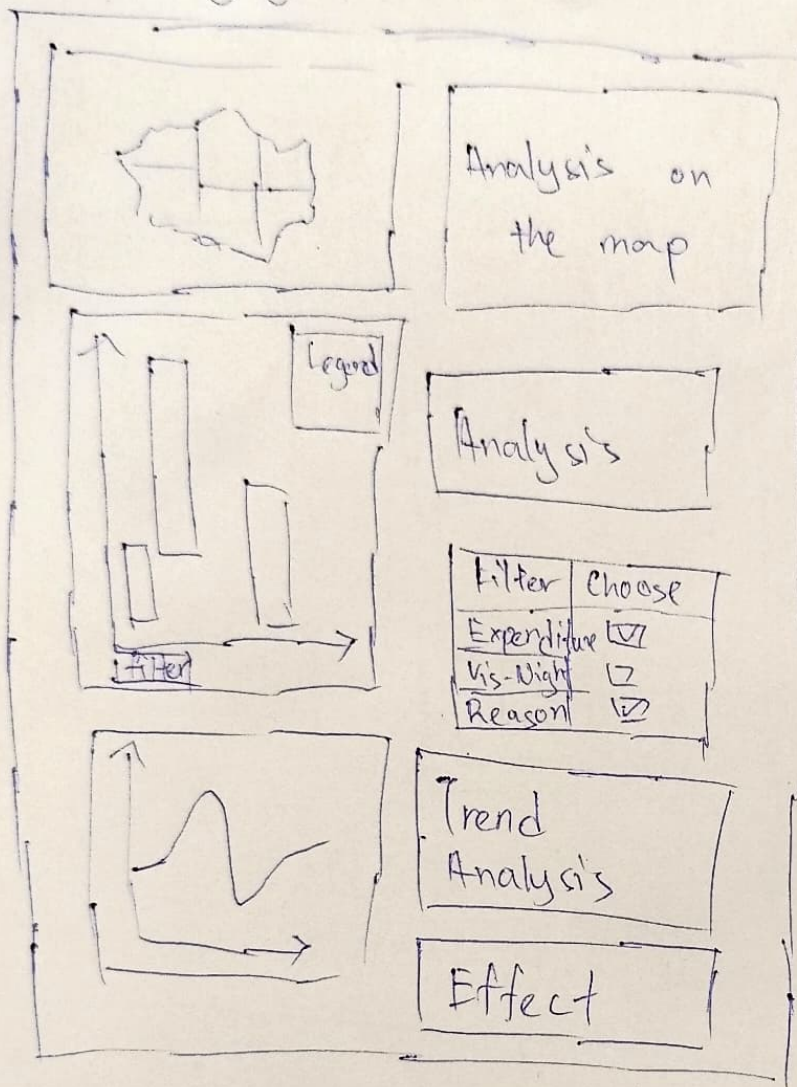 Analysis on
the map
Legend
Analysis
Filter Choose
Expenditure
Vis-Night
Reason
Filter
Trend
Analysis
Effect